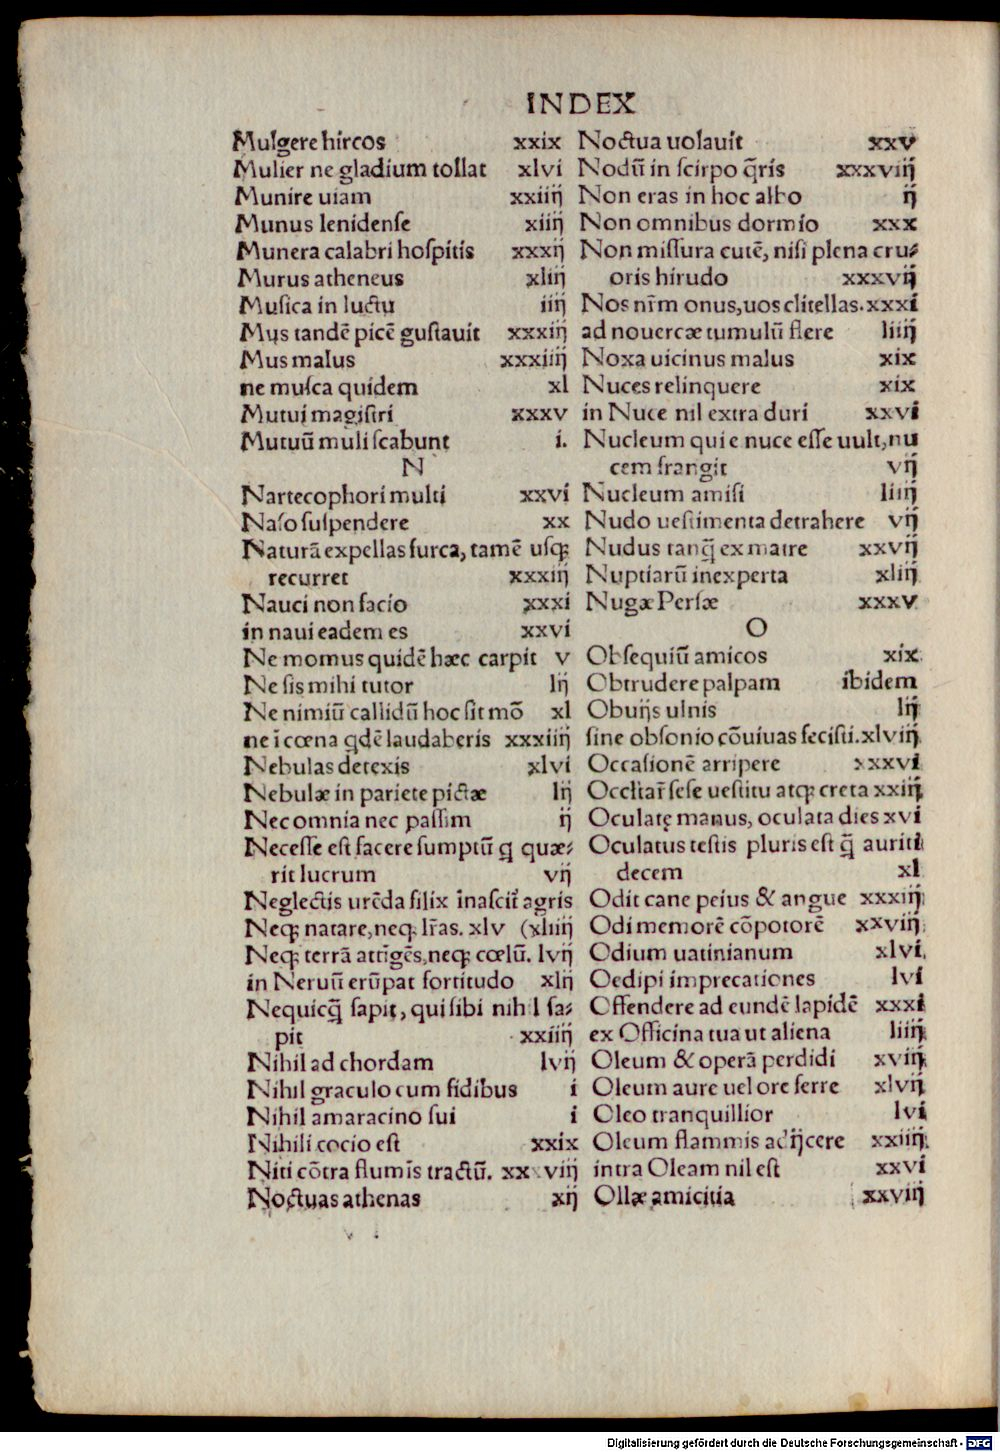 INDEX
Mulgere hircos xxix
Mulier ne gladium tollat xlvi
Munire uiam xxiiij
Munus lenidenſe xiiij
Munera calabri hoſpitis xxxij
Murus atheneus xliij
Muſica in luctu iiij
Mus tandē picē guſtauit xxxiij
Mus malus xxxiiij
ne muſca quidem xl
Mutui magiſtri xxxv
Mutuū muli ſcabunt i.
N
Nartecophori multi xxvi
Naſo ſuſpendere xx
Naturā expellas furca, tamē uſq;
recurret xxxiij
Nauci non facio xxxi
in naui eadem es xxvi
Ne momus quidē hæc carpit v
Ne ſis mihi tutor lij
Ne nimiū callidū hoc ſit mō xl
ne ī cœna qdē laudaberis xxxiiij
Nebulas detexis xlvi
Nebulæ in pariete pictæ lij
Nec omnia nec paſſim ij
Neceſſe eſt facere ſumptū q̄ quæ⸗
rit lucrum vij
Neglectis urēda filix īnaſcit᷑ agris
Neq; natare, neq; lr̄as. xlv (xliiij
Neq; terrā attīgēs, neq; cœlū. lvij
in Neruū erūpat fortitudo xlij
Nequicq̄ ſapit, qui ſibi nihil ſa⸗
pit xxiiij
Nihil ad chordam lvij
Nihil graculo cum fidibus i
Nihil amaracino ſui i
Nihili cocio eſt xxix
Niti cōtra flumīs tractū. xxxviij
Noctuas athenas xij
Noctua uolauit xxv
Nodū in ſcirpo q̄ris xxxviij
Non eras in hoc albo ij
Non omnibus dormio xxx
Non miſſura cutē, niſi plena cru⸗
oris hirudo xxxvij
Nos nr̄m onus, uos clitellas. xxxi
ad nouercæ tumulū flere liiij
Noxa uicinus malus xix
Nuces relinquere xix
in Nuce nil extra duri xxvi
Nucleum qui e nuce eſſe uult, nu
cem frangit vij
Nucleum amiſi liiij
Nudo ueſtimenta detrahere vij
Nudus tanq̄ ex matre xxvij
Nuptiarū inexperta xliij
Nugæ Perſæ xxxv
O
Obſequiū amicos xix
Obtrudere palpam ibidem
Obuijs ulnis lij
ſine obſonio cōuiuas feciſti. xlviij
Occaſionē arripere xxxvi
Occltar᷑ ſeſe ueſtitu atq; creta xxiij
Oculatę manus, oculata dies xvi
Oculatus teſtis pluris eſt q̄ auriti
decem xl
Odit cane peius & angue xxxiij
Odi memorē cōpotorē xxviij
Odium uatinianum xlvi
Oedipi imprecationes lvi
Offendere ad eundē lapidē xxxi
ex Officina tua ut aliena liiij
Oleum & operā perdidi xviij
Oleum aure uel ore ferre xlvij
Oleo tranquillior lvi
Oleum flammis adijcere xxiiij
intra Oleam nil eſt xxvi
Ollæ amicitia xxviij
Digitalisierung gefördert durch die Deutsche Forschungsgemeinschaft - DFG